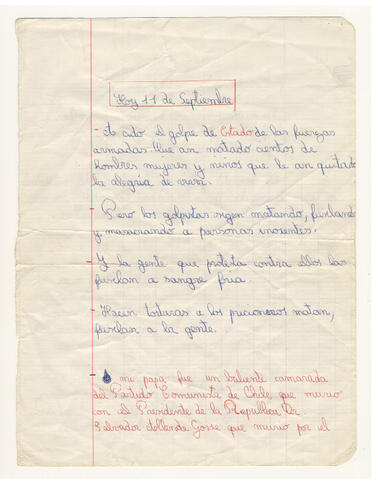 Hoy 11 de Septiembre
- A sido el golpe de Estado de las fuerzas
armadas que an matado cientos de
hombres mujeres y niños que le an quitado
la alegria de vivir.
- Pero los golpistas sigen matando, fusilando
y masacrando a personas inosentes.
- Y la gente que protesta contra ellos las
fusilan a sangre fria
- Hacen toturas a los pricioneros matan,
fusilan a la gente.
- mi papa fue un baliente camarada
del Partido Comunista de Chile que murio
con el Presidente de la Republica Dr.
Salvador Allende Gosse que murio por el